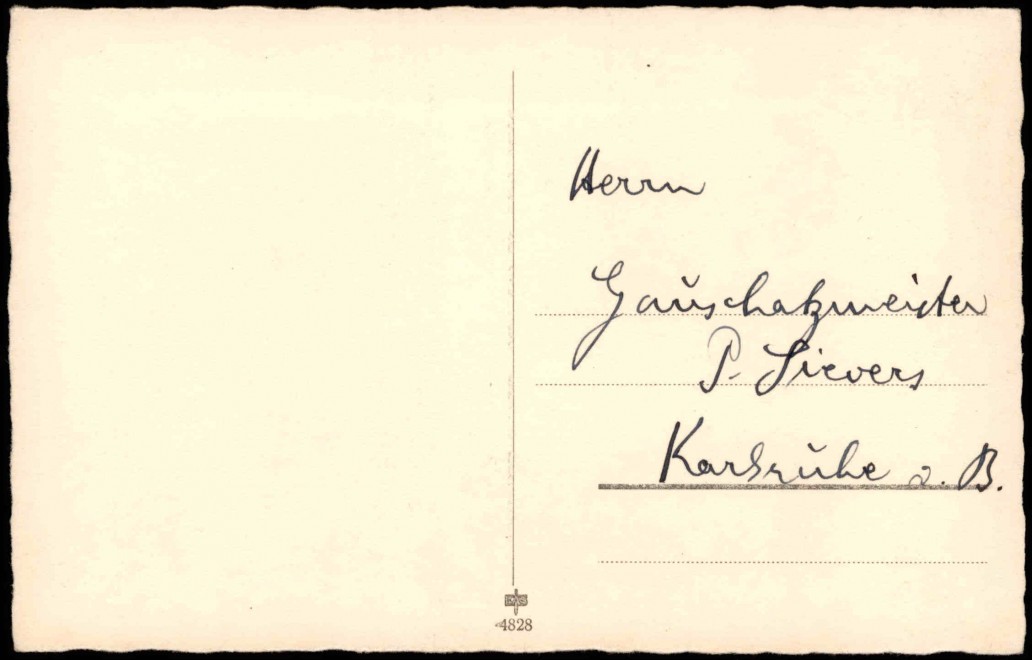 Herrn
Gauschatzmeister
P. Sievers
Karlsruhe a. B.
EAS
4828